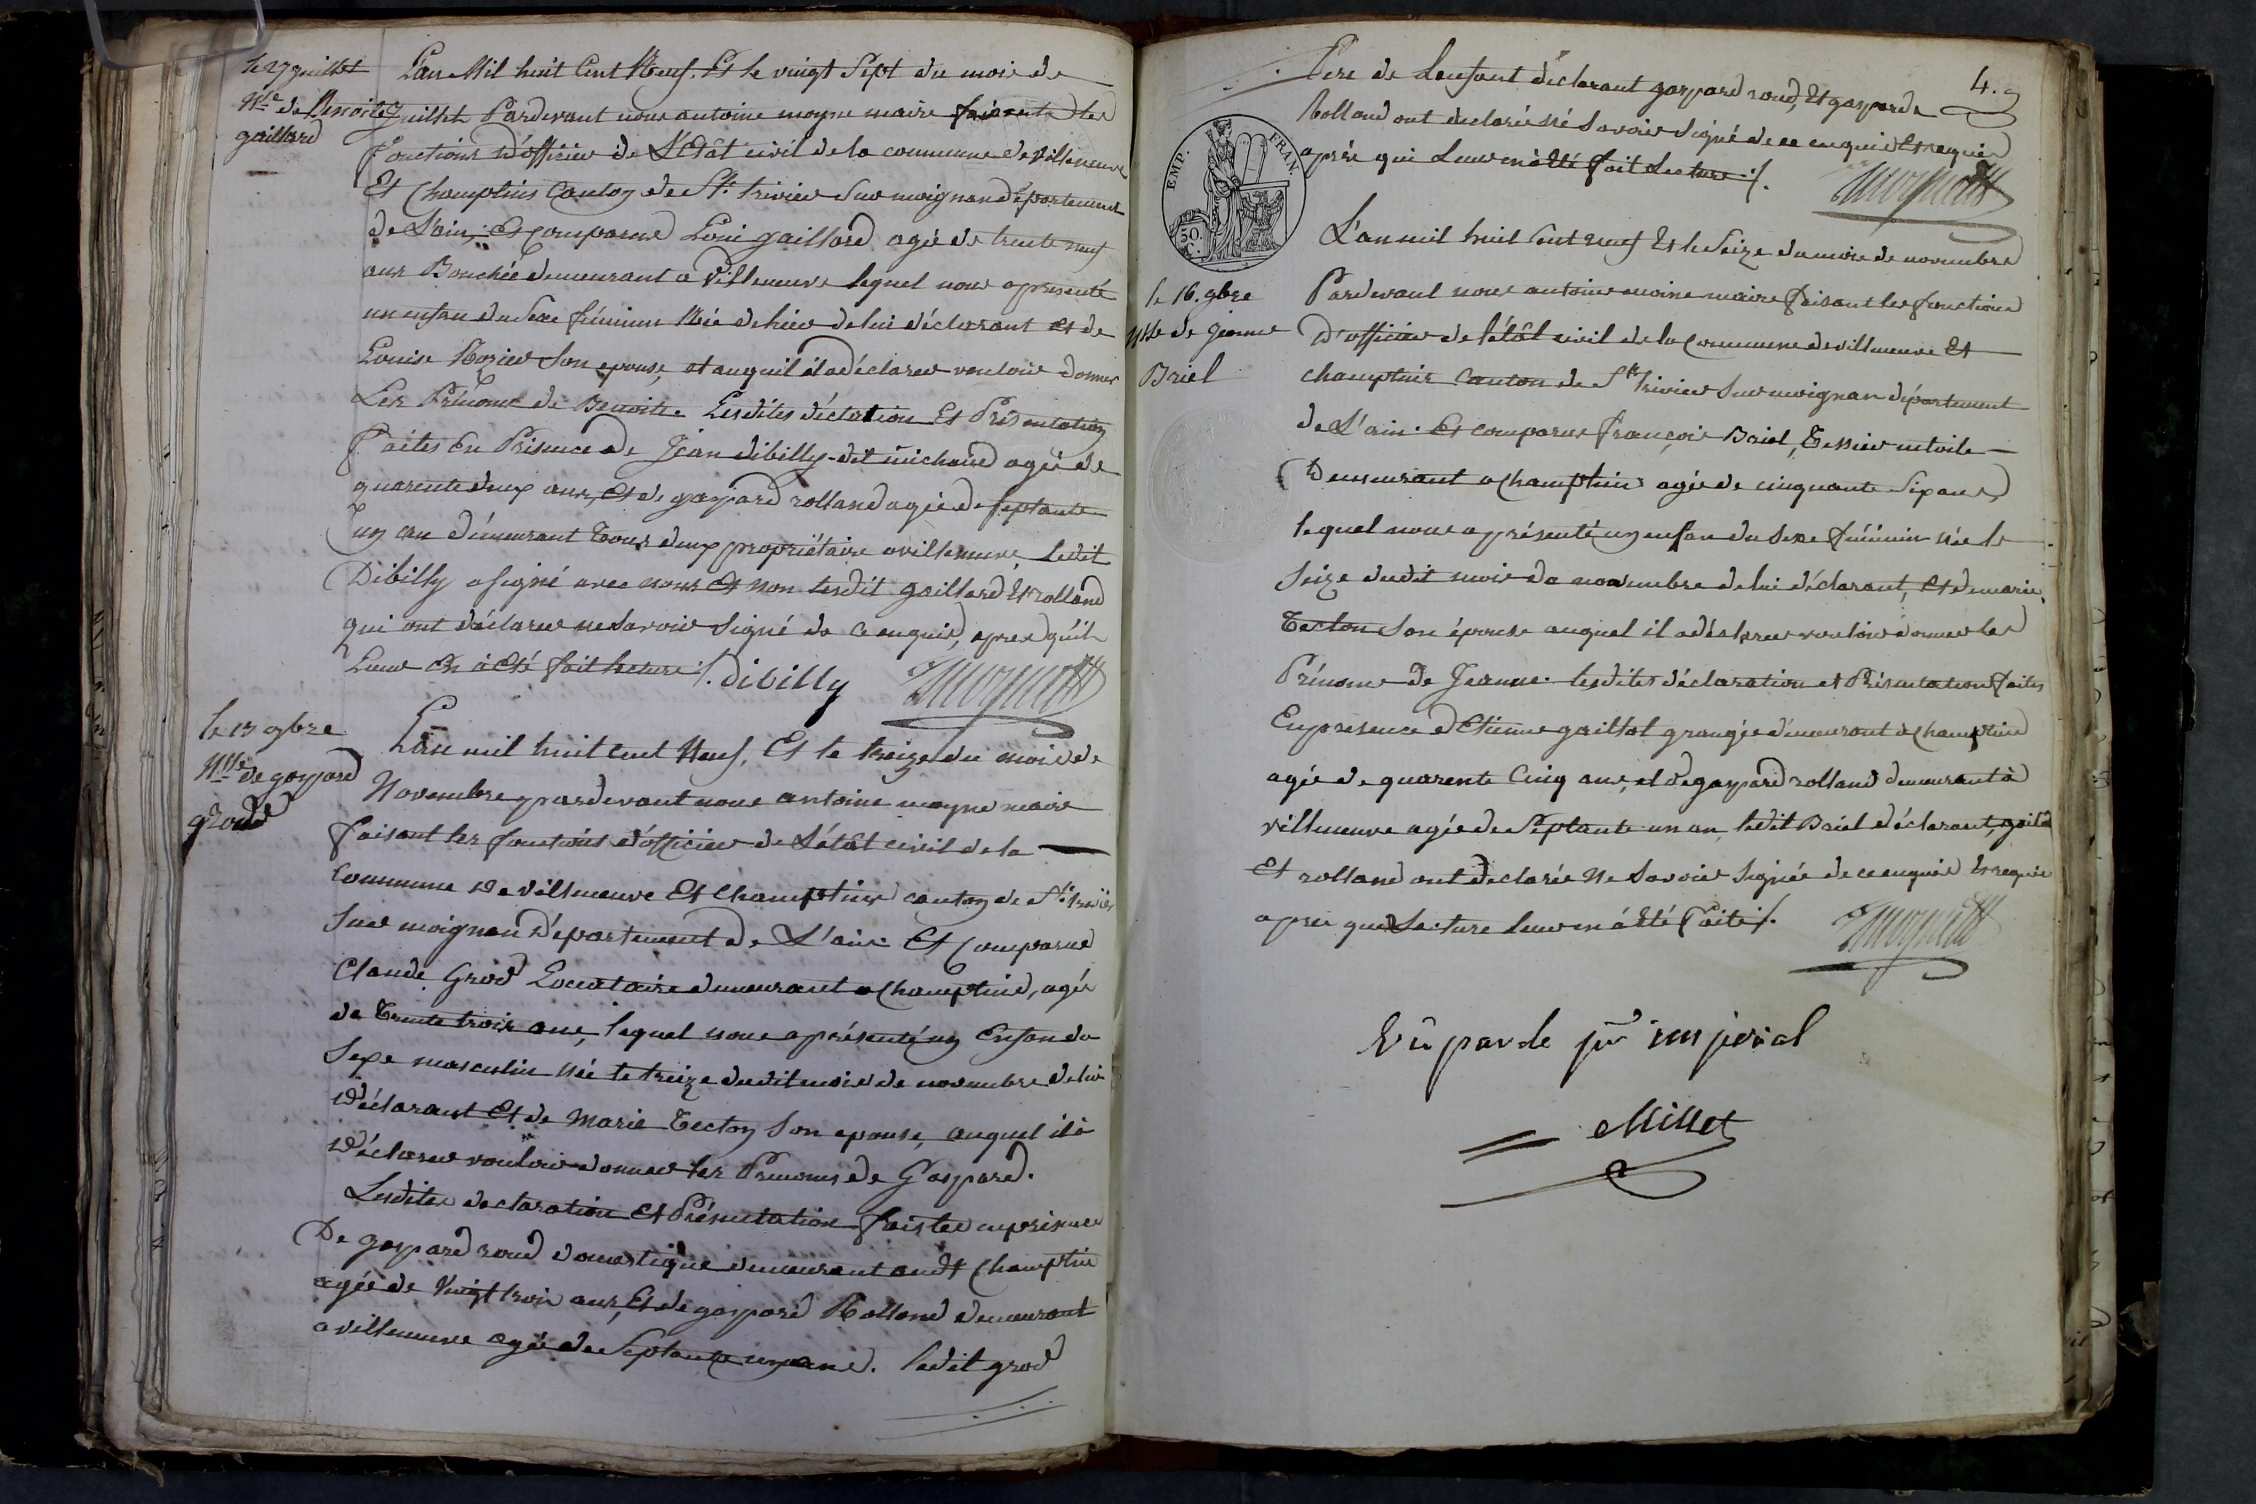 le 27 juillet
Nce de Benoite
gaillard
L'an Mil huit Cent Neuf. Et le vingt Sept du mois de
juillet Pardevant nous antoine moyne maire faisant les
fonctions d'officier de L'Etât civil de la commune de Villeneuve
Et Champtins Canton de St. trivier Sur moignan département
de L'ain, Et comparue Loui gaillard agée de trente neuf
ans Bouchée demeurant a Villeneuve lequel nous a presenté
un enfan du Sexe féminin Née de hier de lui déclarant et de
Louise Rosier Son epouse, et auquil il a déclarer vouloir donner
Les Prénoms de Benoite. Lesdites déclation Et Présentation
faites En Présence de Jean dibilly dit michaud agée de
quarente deux ans, et de gaspard rolland agée de septante
un an démeurant tous deux propriétaire a villeneuve, Ledit
Dibilly a signé avec nous et non lesdit gaillard Et rolland
qui ont déclarer ne Savoir Signé de ce enquis, apres qu'il
Leur En a été fait lecture ./. dibilly
le 13 9bre
Nce de gaspard
grod
L'an mil huit cent Neuf, Et le treize du mois de
Novembre pardevant nous antoine moyne maire
faisant les fonctions d'officier de L'étât civil de la
Commune de Villeneuve Et Champtins canton de St. trivier
Sur moignan département de L'ain Et Comparue
Claude Grod Locataire demeurant a Champtins, agée
de trente trois ans, lequel nous a présenté un Enfan du
Sexe masculin Née le treize dudit mois de novembre de lui
déclarant Et de Marie Tecton Son epouse, auquel il à
déclarer vouloir donner les Prenoms de Gaspard.
Lesdites declaration Et Présentation faistes en présence
De gaspard roud domestique demeurant audt Champtin
agée de Vingt trois ans, Et de gaspard Rolland demeurant
a villeneuve agée de Septante un ans. Ledit grod
4.
Pere de Lenfant déclarant gaspard roud, Et gaspard
Rolland ont declarée Né Savoir Signé de ce enquis Et requis
après qui Leur en à été fait Lecture ./.
EMP. FRAN.
50.
C.
le 16. 9bre
Nce de jeanne
Briel
L'an mil huit Cent neuf Et le Seize du mois de novembre
Pardevant nous antoine moine maire faisant les fonctions
D'officier de l'étât civil de la Commune de villeneuve Et
champtins Canton de St trivier Sur moignan département
de L'ain. Et comparue françois Briel, Tessier en toile
Demeurant a Champtins agée de cinquante Six ans,
lequel nous a présenté un enfan du Sexe féminin née le
Seize dudit mois de novembre de lui déclarant, et de marie
Tecton Son épouse auquel il a déclarer vouloir donner les
Prénoms de Jeanne. lesdites déclaration et Présentation faites
En présence d'Etienne gaillot grangée démeurant à Champtins
agée de quarente Cinq ans, et de gaspard rolland demeurant à
villeneuve agée de Septante un an, ledit Briel déclarant,
Et rolland ont déclarée Ne Savoir Signée de ce enquis Et requis
après que Lecture leur en à été faite ./.
Vû par le pr imperial
Millet